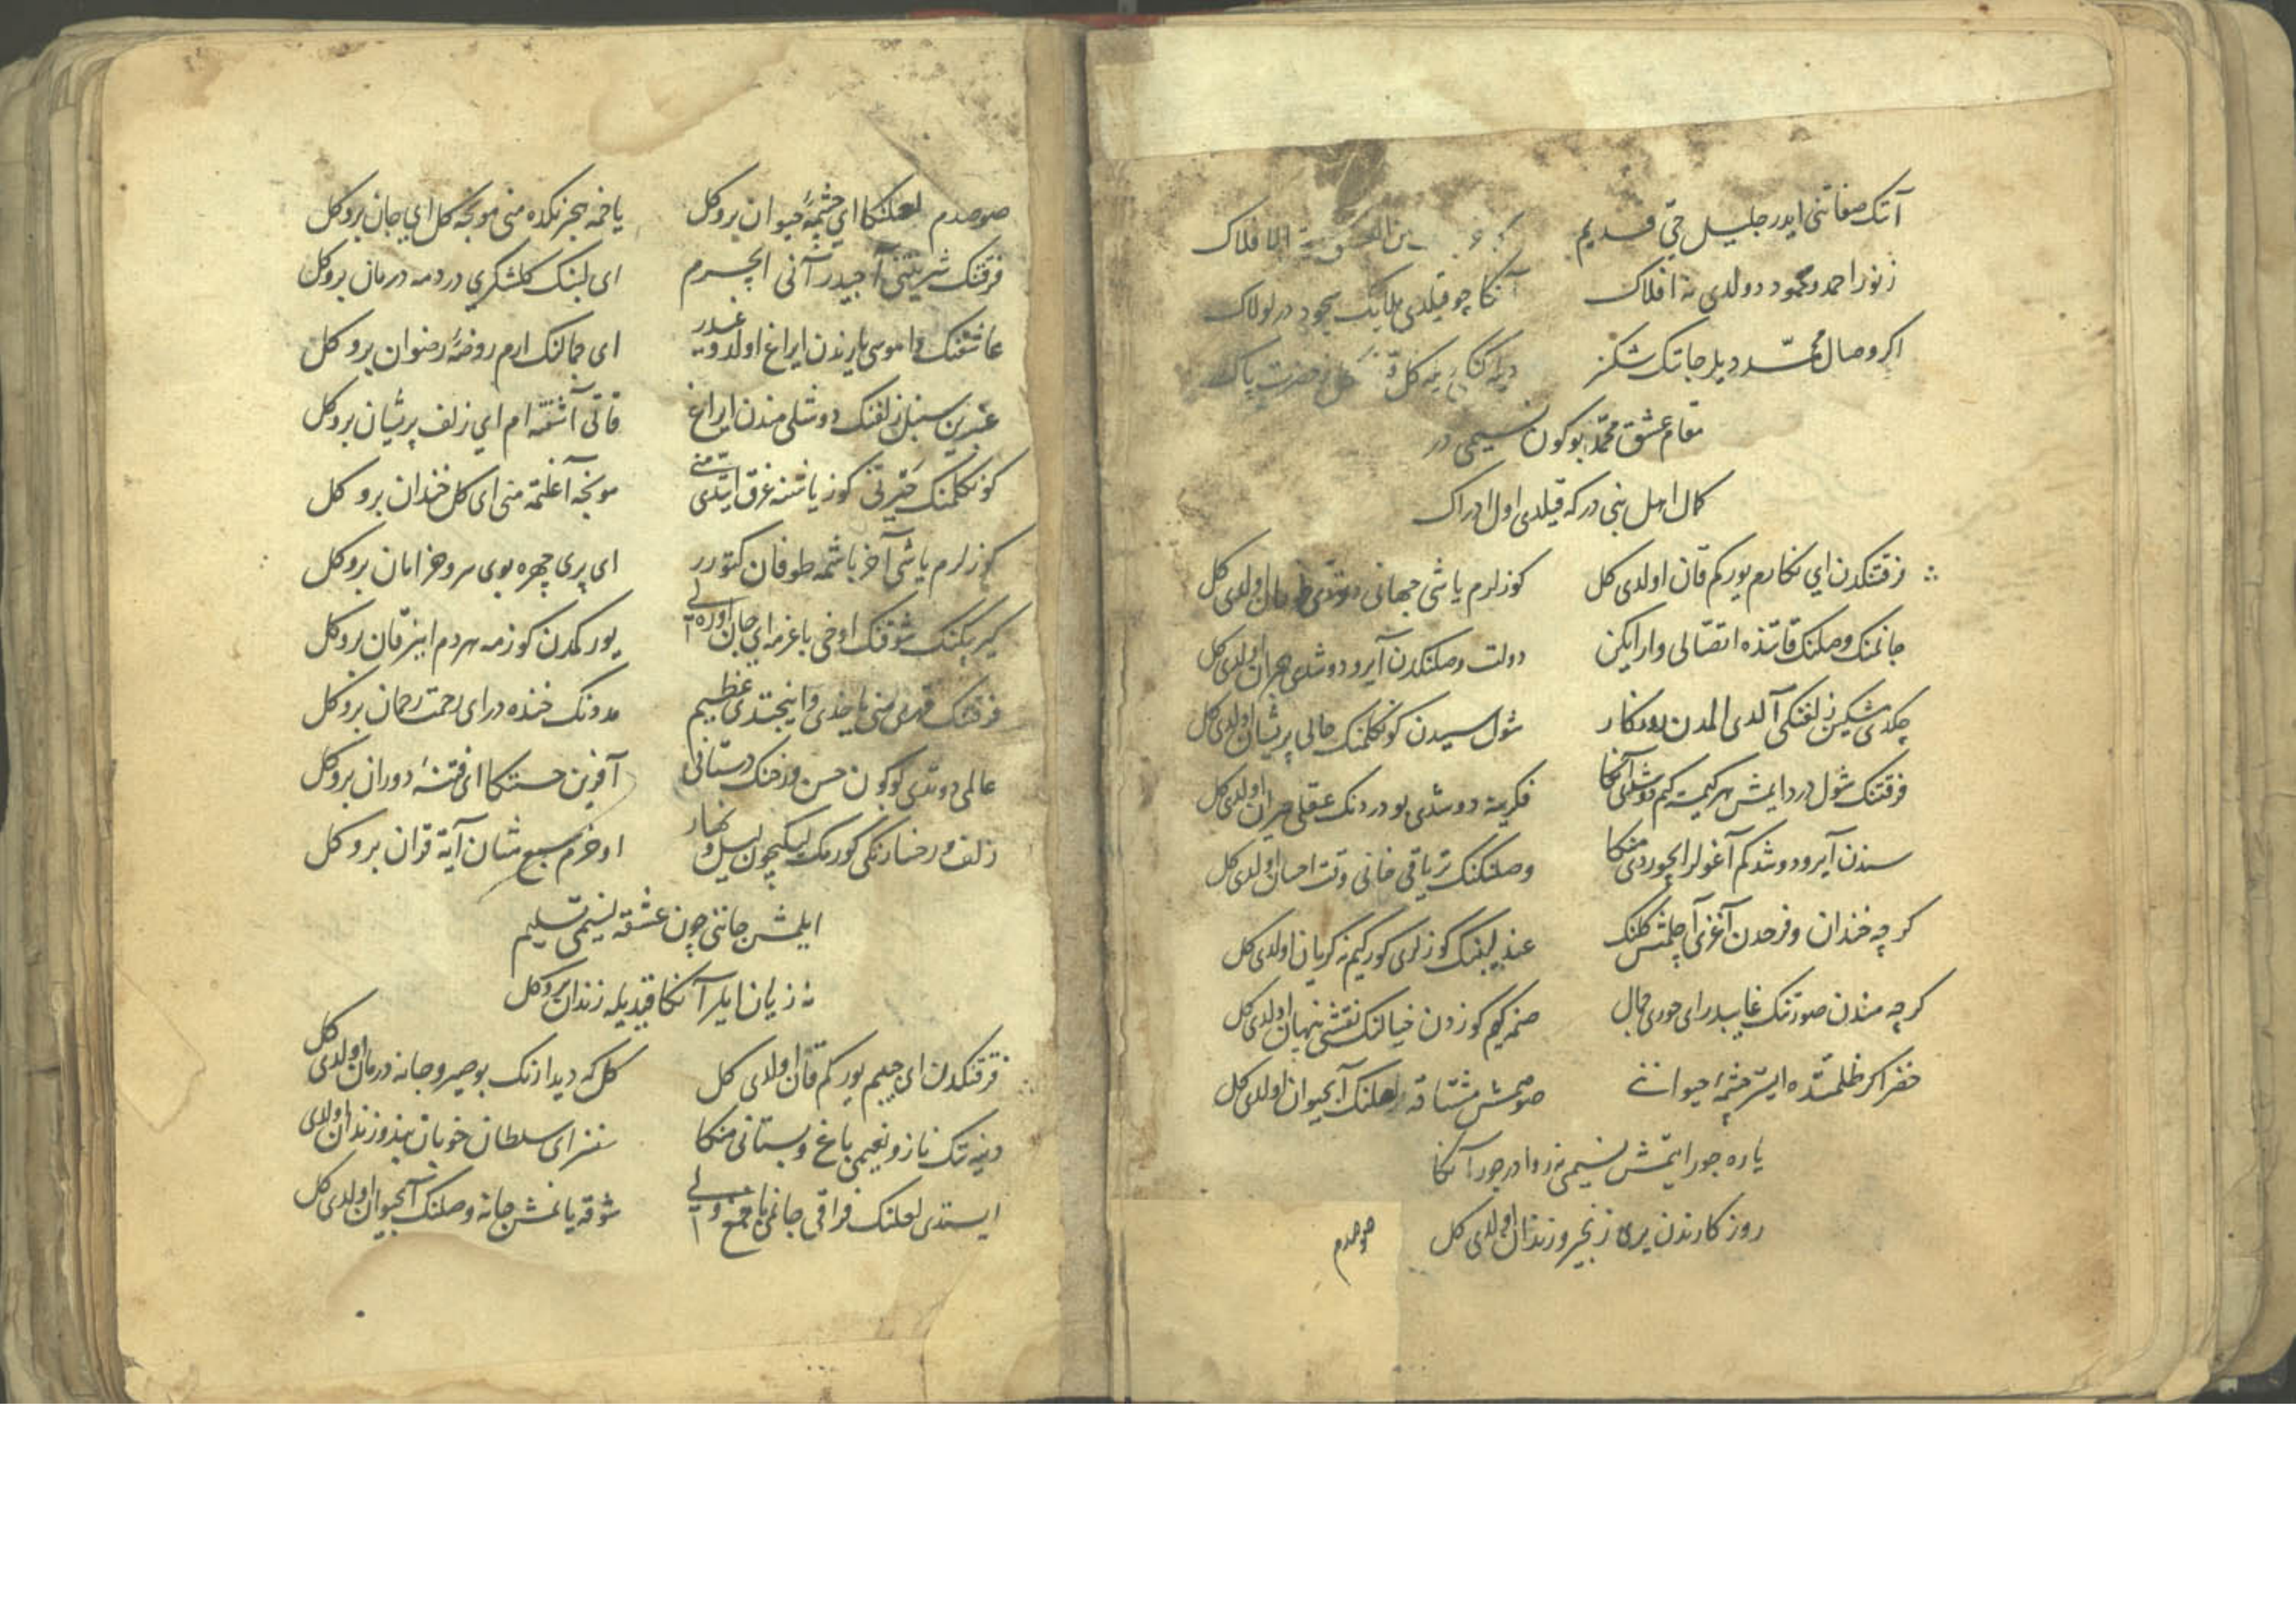 آنک صفاتنی ایدر جلیل حیّ قدیم
الافلاک
ز نور احمد و محمود دولدی نه افلاک
آنکا چو قیلدی ملایک سجود در لولاک
اکر وصال محمّد دیلر جانک شکز
حضرت پاک
مقام عشق محمّد بو کون نسیمی در
کمال اهل بنی در که قیلدی اول ادراک
فرقتکدن ای نکارم یورکم قان اولدی کل
کوزلرم یاشی جهانی دوتدی طوفان اولدی کل
جانمنک وصلنک قاتنده اتصالی وار ایکن
دولت وصلنکدن آیرو دوشدی هجران اولدی کل
چکدی مشکین زلفنکی آلدی المدن روزکار
شول سببدن کونکلمنک حالی پریشان اولدی کل
فرقتنک شول درد ایمش هر کیمسه کیم دوشدی آنکا
فکرینه دوشدی بو دردنک عقلی حیران اولدی کل
سندن آیرو دوشدکم آغولر ایچوردی منکا
وصلنکنک تریاقی قانی وقت احسان اولدی کل
کرچه خندان و فرحدن آغزی آچلمش کلنک
عندلیبنک کوزلری کور کیم نه کریان اولدی کل
کرچه مندن صورتنک غایبدر ای حوری جمال
صنمه کیم کوزدن خیالنک نقشی پنهان اولدی کل
خضر اکر ظلمتده ایستر چشمهٔ حیوانی
صوصمش مشتاقه لعلنک آبحیوان اولدی کل
یاره جور ایتمش نسیمی نه روا در جور آنکا
روزکارندن یری زنجیر و زندان اولدی کل
صوصدم
صوصدم لعلنکا ای چشمهٔ حیوان برو کل
یاخمه هجرنکده منی مونجه کل ای جان برو کل
فرقتنک شربتنی آجیدر آنی ایچرم
ای لبنک کلشکری دردمه درمان برو کل
عاشقنک داموسی یارندن ایراغ اولدوغیدر
ای جمالنک ارم روضهٔ رضوان برو کل
عنبرین سنبل زلفنک دوشلی مندن ایراغ
قاتی آشفته ام ای زلف پریشان برو کل
کونکلمنک حیرتی کوز یاشنه غرق ایتدی منی
مونجه آغلتمه منی ای کل خندان برو کل
کوزلرم یاشی آخر باشمه طوفان کتورر
ای پری چهره بوی سرو خرامان برو کل
کیربکنک شوقنک اوخی باغرمه ای جان اورهلی
یورکمدن کوزمه هردم اینر قان برو کل
فرقتنک قهری منی یاخدی و اینجتدی عظیم
مدونک خنده در ای رحمت رحمان برو کل
عالمی دوتدی بو کون حسن رخنک دستانی
آفرین حسنکا ای فتنهٔ دوران برو کل
زلف و رخسارنکی کورمک لیکیچون لیل و نهار
اوخرم سبع مثان آیهٔ قران برو کل
ایلمش جاننی چون عشقه نسیمی تسلیم
نه زیان ایلر آنکا قیدیله زندان برو کل
فرقتکدن ای حبیبم یورکم قان اولدی کل
کل که دیدارنک بو صبر و جانه درمان اولدی کل
دنیهنک ناز و نعیمی باغ و بستانی منکا
سنسز ای سلطان خوبان بند و زندان اولدی
ایستدی لعلنک فراقی جانمی یاخمغ
شوقه یانمش جانه وصلنک آبحیوان اولدی کل